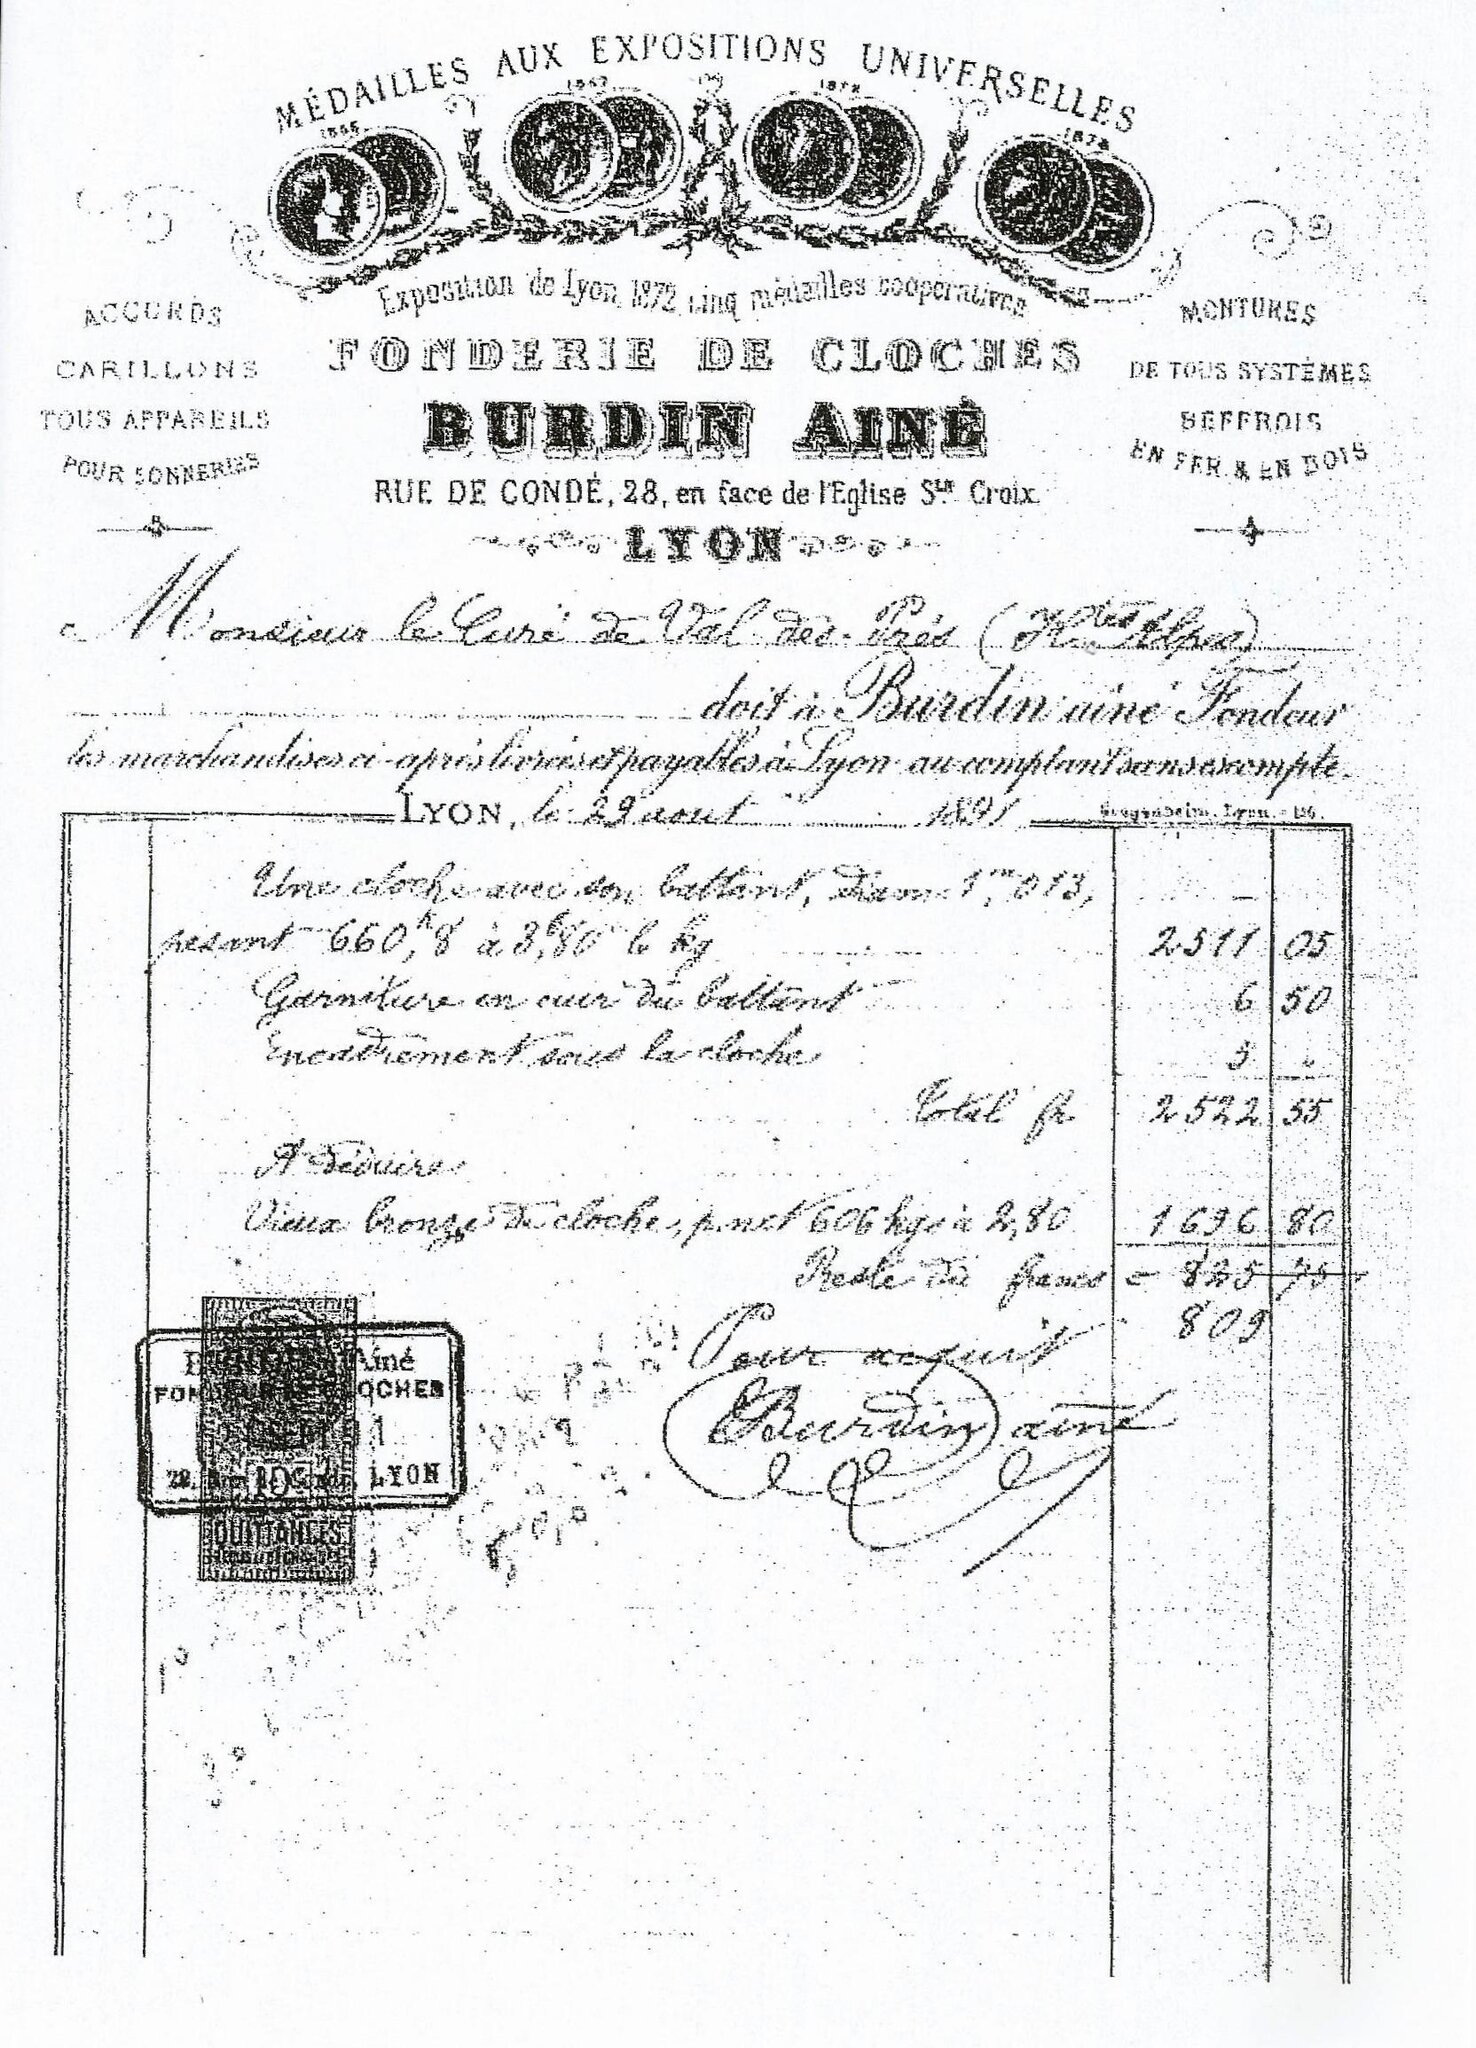 MÉDAILLES AUX EXPOSITIONS UNIVERSELLES
1867 1872
1878
Exposition de Lyon 1872 cinq médailles coopératives
ACCORDS
CARILLONS
TOUS APPAREILS
POUR SONNERIES
FONDERIE DE CLOCHES
BURDIN AINÉ
RUE DE CONDÉ, 28, en face de l'Eglise Ste Croix
LYON
MONTURES
DE TOUS SYSTÈMES
BEFFROIS
EN FER & EN BOIS
Monsieur le Curé de Val des Prés (Htes Alpes)
doit à Burdin ainé Fondeur
les marchandises ci-après livrées et payables à Lyon au comptant sans escompte.
LYON, le 29 aout 1891
Une cloche avec son battant, diam 1m,013,
pesant 660,k8 à 3,f80 le kg 2511 05
Garniture en cuir du battant 6 50
Encadrement sous la cloche 5 "
Total fr 2522 55
A déduire
Vieux bronze de cloche, p. net 606 kgs à 2,80 1696 80
Reste dû francs = 825 75
809
Pour acquit
Burdin ainé
Ainé
FONDEUR DE CLOCHES
LYON
10c
QUITTANCES